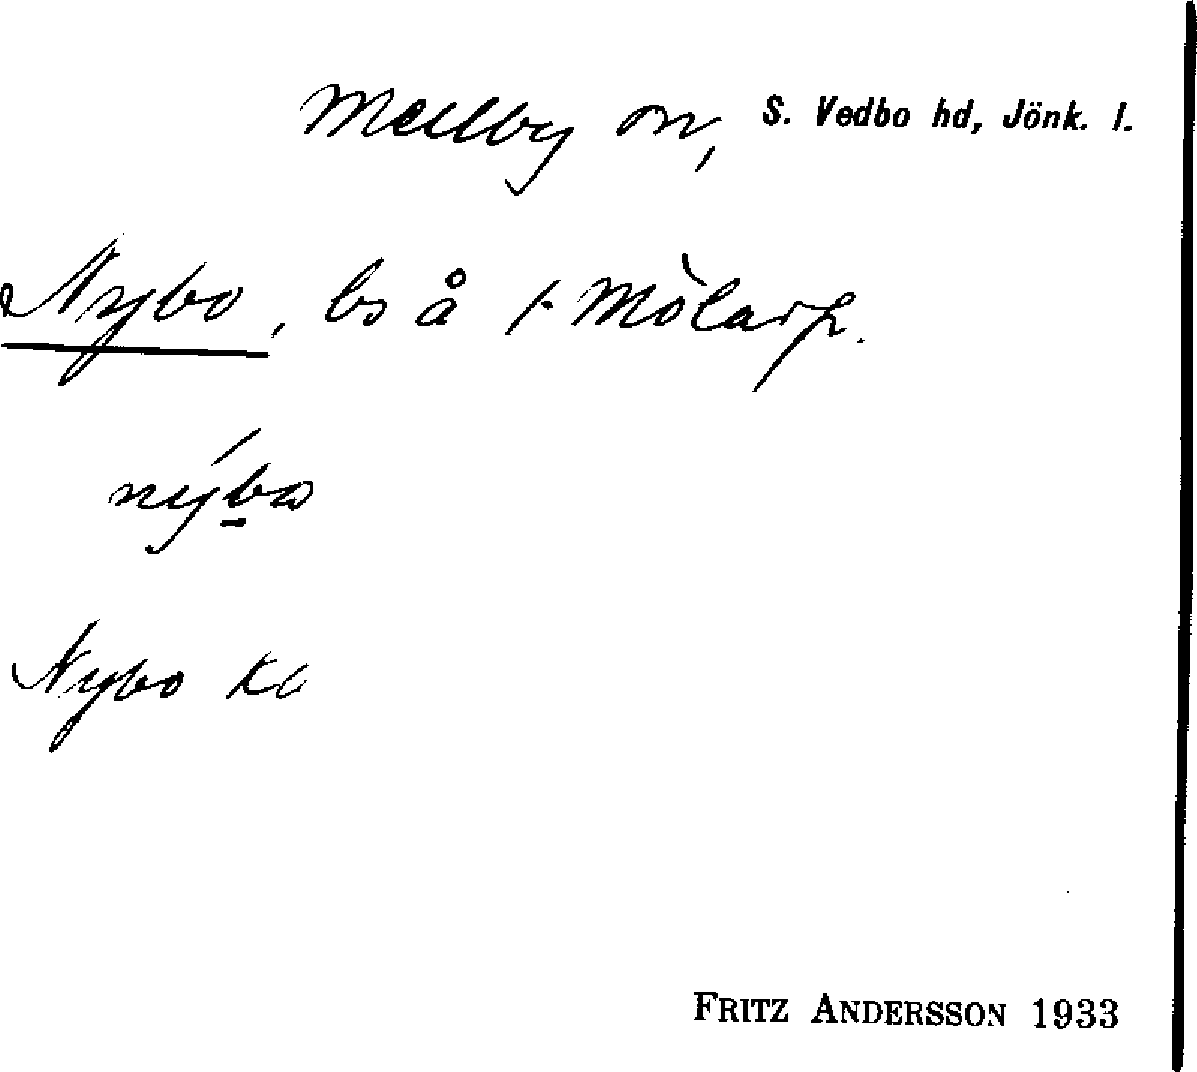 Mellby sn, S. Vedbo hd, Jönk. l.
Nybo, bs å f. Mölarp.
nýbo
Nybo Kb
FRITZ ANDERSSON 1933